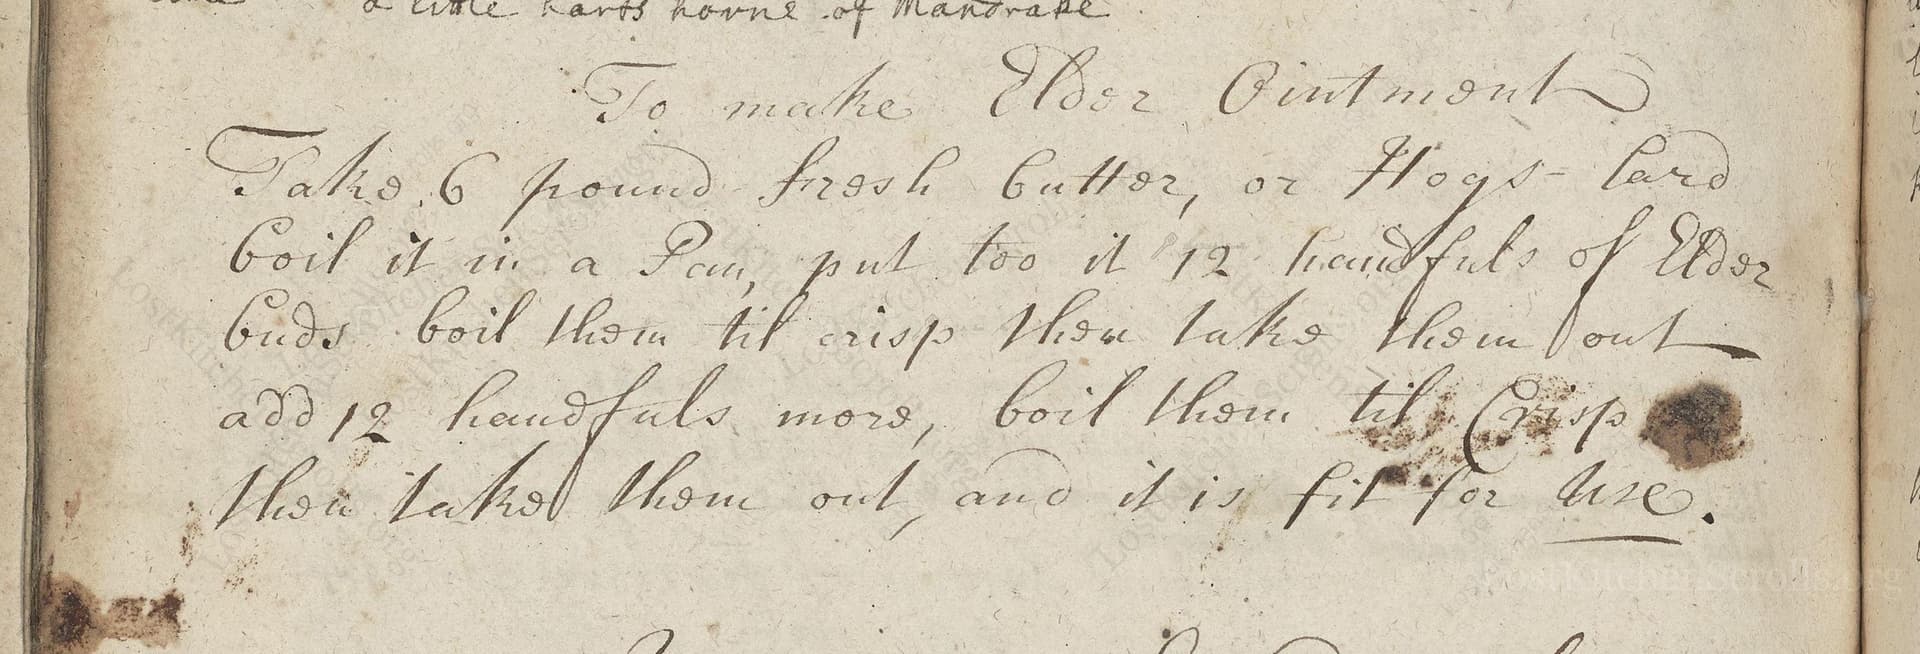 a little harts horne of Mandrake
To make Elder Ointment
Take 6 pound fresh butter, or Hogs-lard
boil it in a Pan, put too it 12 handfuls of Elder
buds boil them til crisp then take them out
add 12 handfuls more, boil them til Crisp
then take them out, and it is fit for Use.
LostKitchenScrolls.org